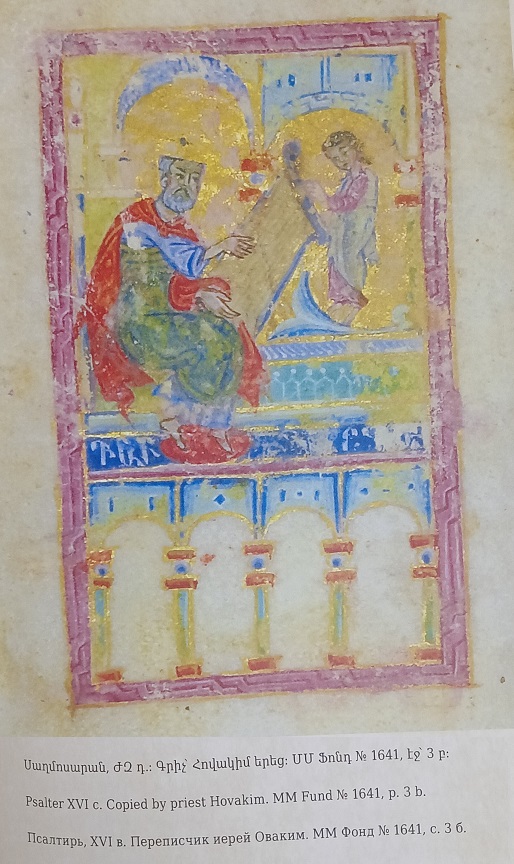 Սաղմոսարան, ԺԶ դ.: Գրիչ՝ Հովակիմ երեց: ՄՄ Ֆոնդ № 1641, էջ՝ 3 բ:
Psalter XVI c. Copied by priest Hovakim. MM Fund № 1641, p. 3 b.
Псалтирь, XVI в. Переписчик иерей Оваким. ММ Фонд № 1641, с. 3 б.